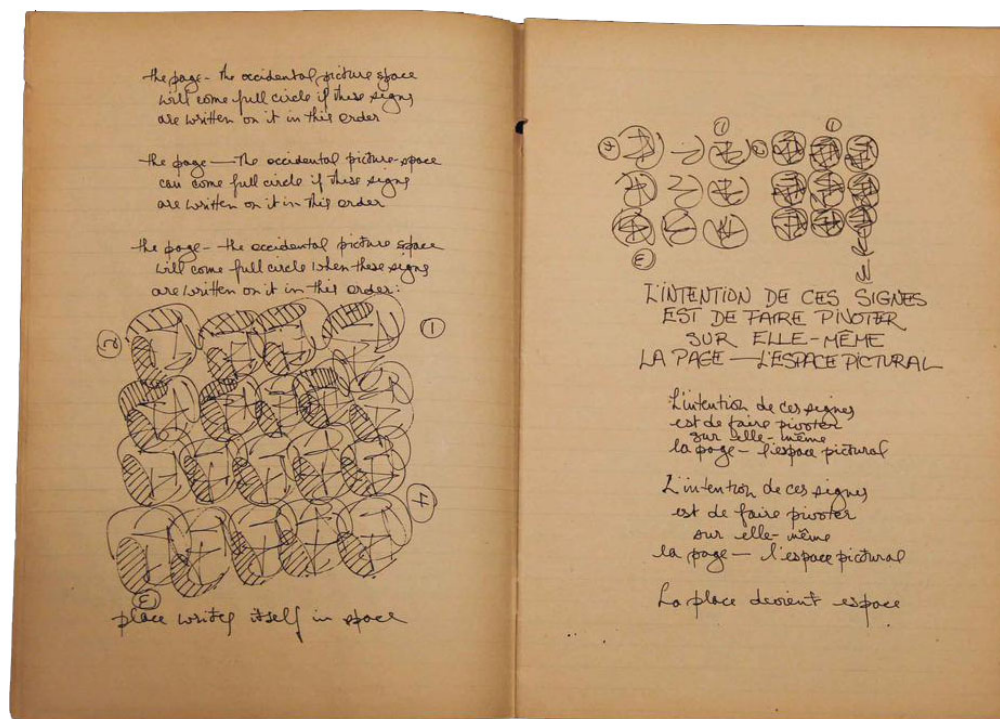 the page - the occidental picture space
will come full circle if these signs
are written on it in this order
the page — the occidental picture-space
can come full circle if these signs
are written on it in this order
the page - the occidental picture space
will come full circle when these signs
are written on it in this order:
2
1
4
3
place writes itself in space
4
1
2
1
3
L'INTENTION DE CES SIGNES
EST DE FAIRE PIVOTER
SUR ELLE-MÊME
LA PAGE — L'ESPACE PICTURAL
L'intention de ces signes
est de faire pivoter
sur elle-même
la page - l'espace pictural
L'intention de ces signes
est de faire pivoter
sur elle-même
la page — l'espace pictural
La place devient espace